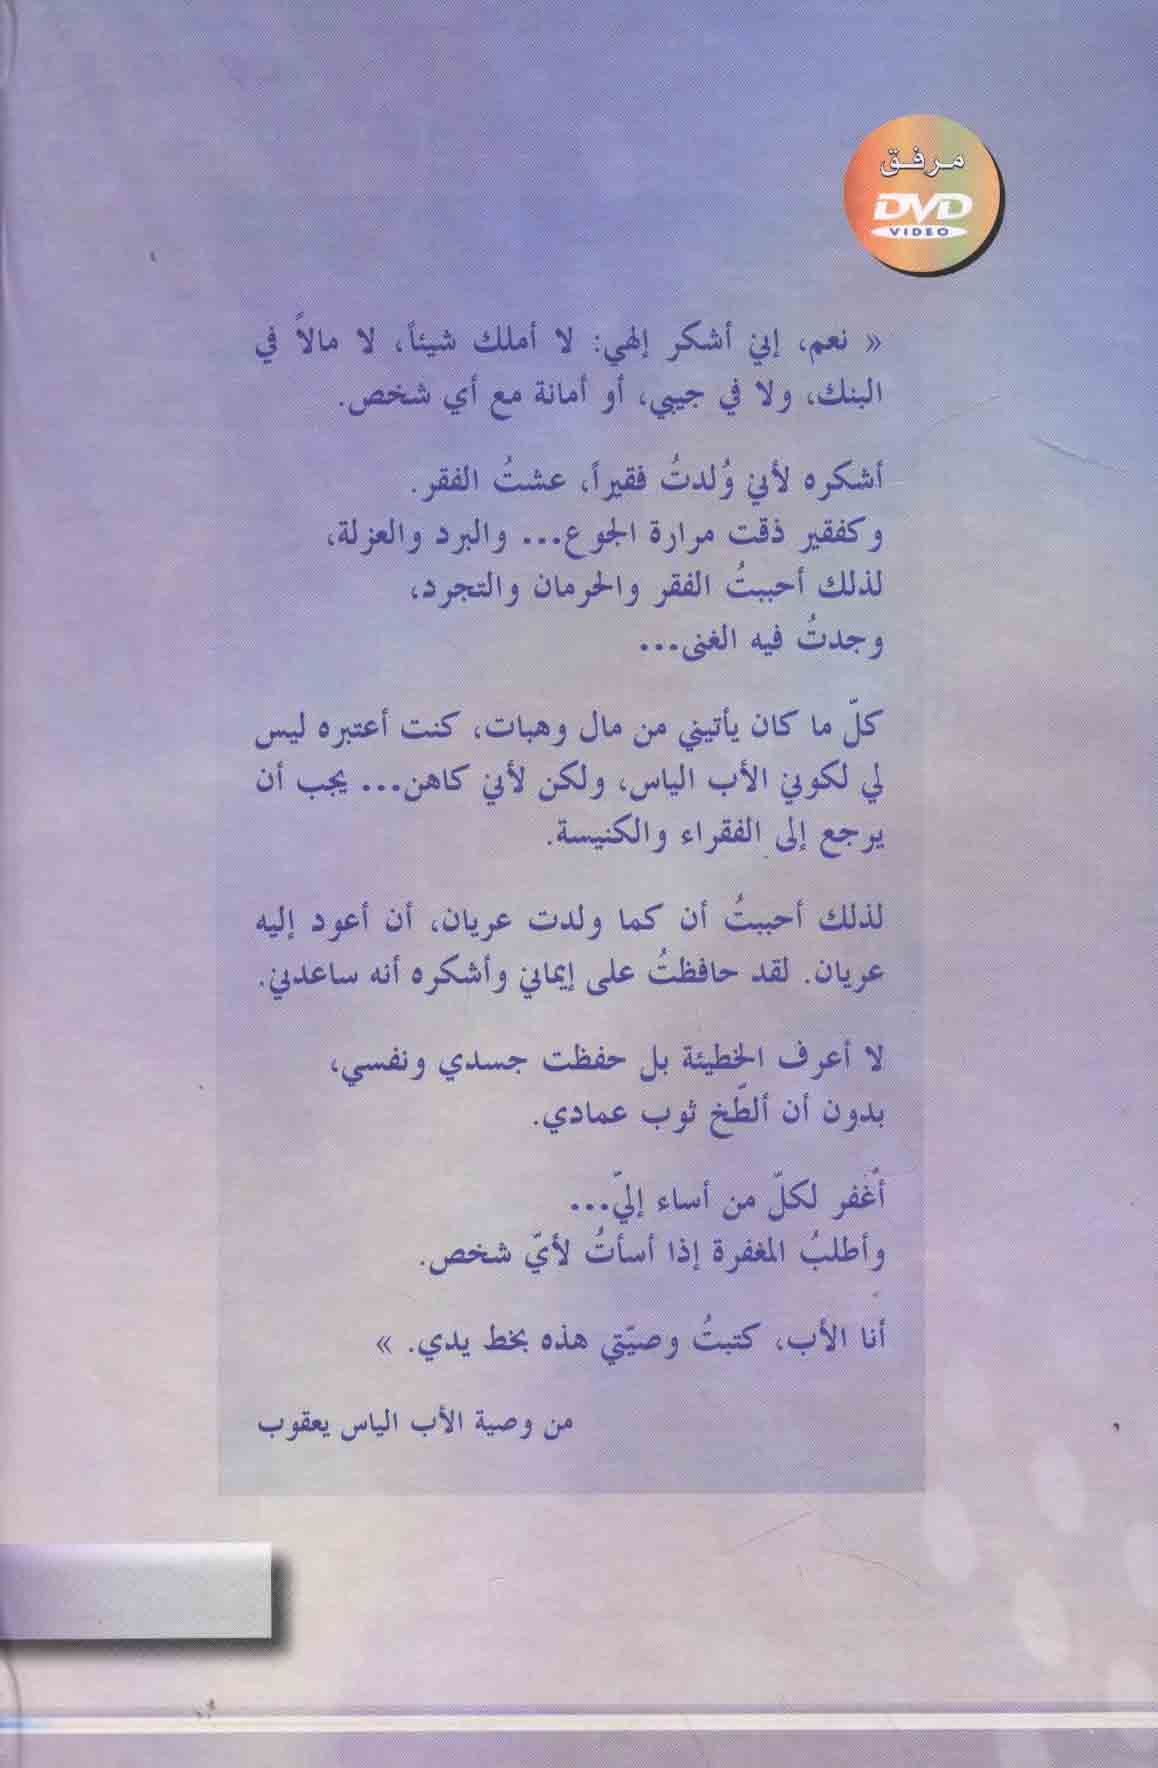 مرفق
DVD
VIDEO
« نعم، إني أشكر إلهي: لا أملك شيئاً، لا مالاً في
البنك، ولا في جيبي، أو أمانة مع أي شخص.
أشكره لأني وُلدتُ فقيراً، عشتُ الفقر.
وكفقير ذقت مرارة الجوع... والبرد والعزلة،
لذلك أحببتُ الفقر والحرمان والتجرد،
وجدتُ فيه الغنى...
كلّ ما كان يأتيني من مال وهبات، كنت أعتبره ليس
لي لكوني الأب الياس، ولكن لأني كاهن... يجب أن
يرجع إلى الفقراء والكنيسة.
لذلك أحببتُ أن كما ولدت عريان، أن أعود إليه
عريان. لقد حافظتُ على إيماني وأشكره أنه ساعدني.
لا أعرف الخطيئة بل حفظت جسدي ونفسي،
بدون أن ألطّخ ثوب عمادي.
أغفر لكلّ من أساء إليّ...
وأطلبُ المغفرة إذا أسأتُ لأيّ شخص.
أنا الأب، كتبتُ وصيّتي هذه بخط يدي. »
من وصية الأب الياس يعقوب